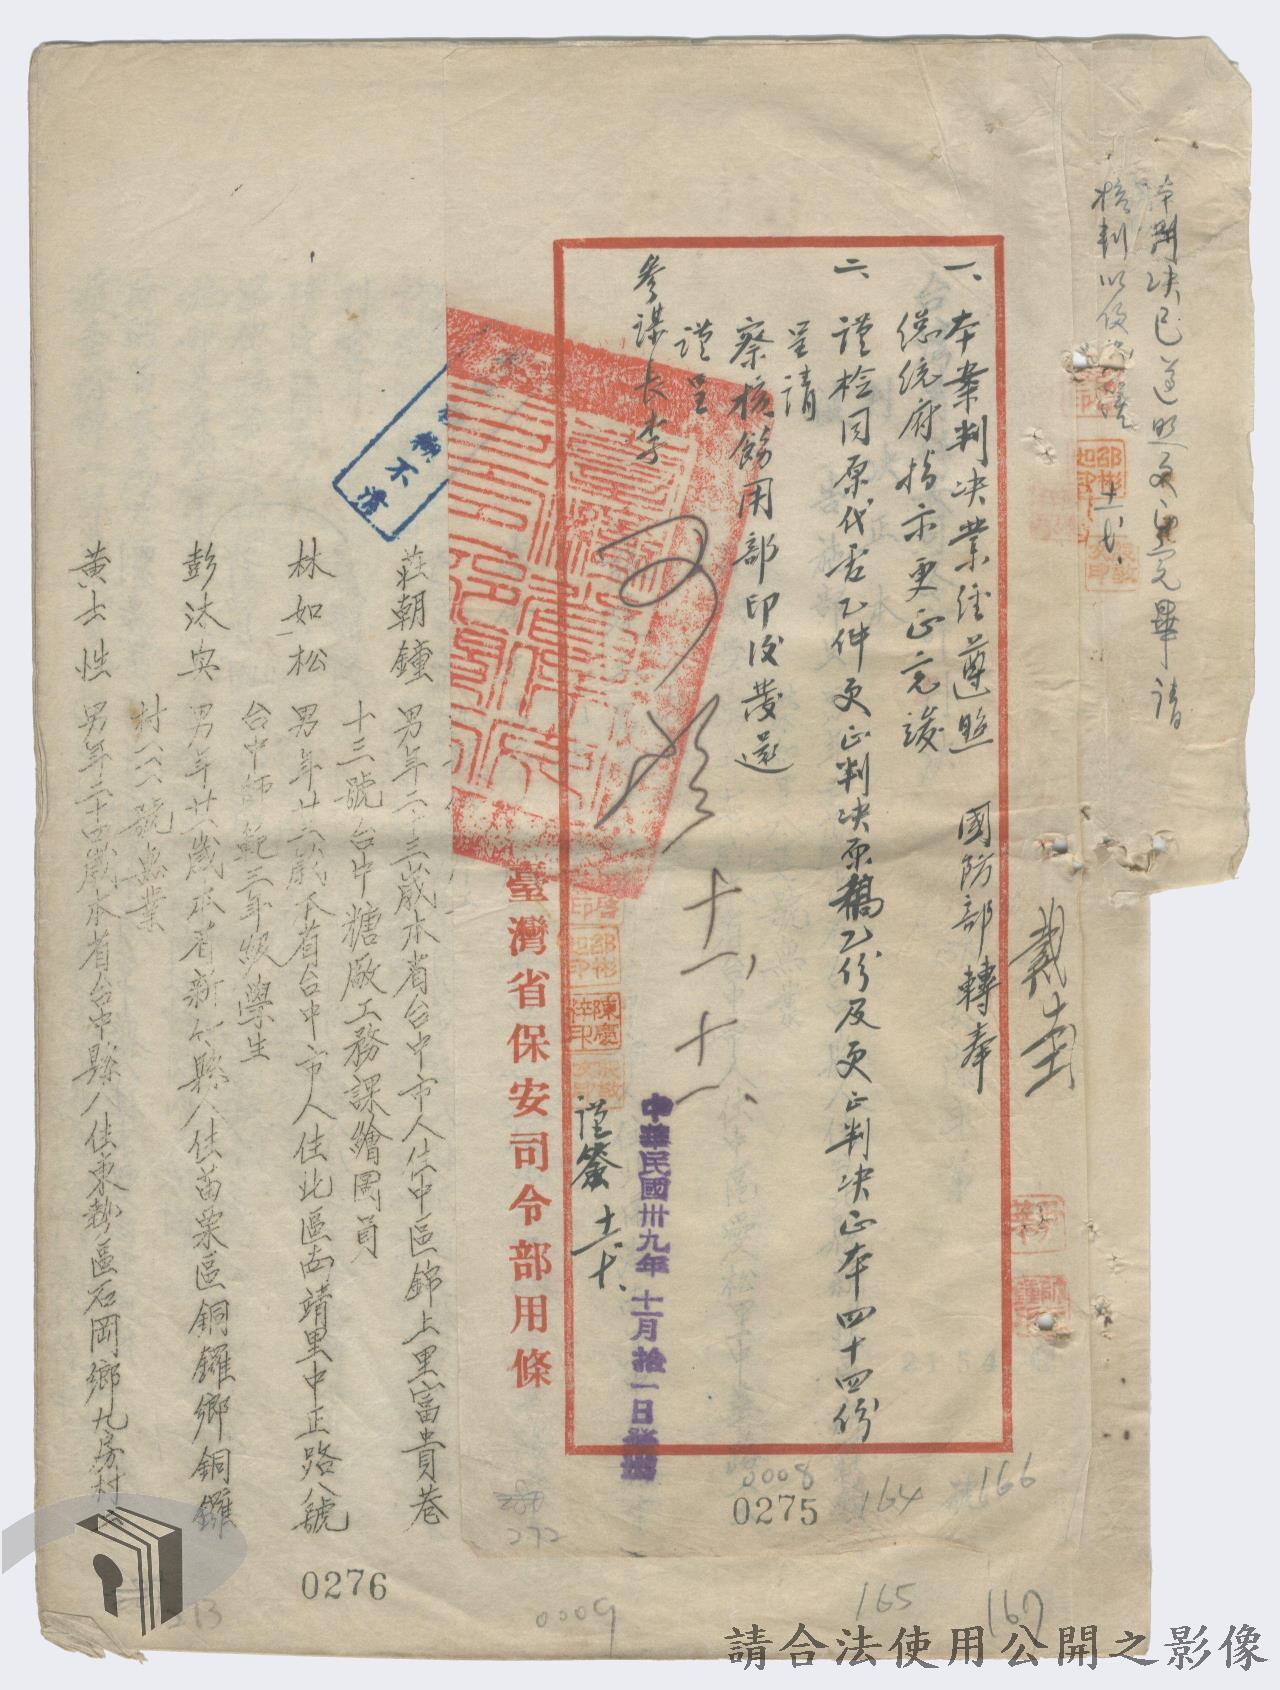 本判決已遵照更正完畢請
核判以便
一、本案判決業經遵照 國防部轉奉
總統府指示更正完竣
二、謹檢同原代電乙件更正判決原稿乙份及更正判決正本四十四份
呈請
察核飭用部印後發還
謹呈
參謀長李
謹簽
中華民國卅九年十一月拾一日
臺灣省保安司令部用條
糊不清
莊朝鐘 男年二十三歲本省台中市人住中區錦上里富貴巷
十三號台中糖廠工務課繪圖員
林如松 男年廿六歲本省台中市人住北區西靖里中正路八號
台中師範三年級學生
彭沐 男年廿歲本省新竹縣人住苗栗區銅鑼鄉銅鑼
村六六號無業
黃士性 男年二十四歲本省台中縣人住東勢區石岡鄉九房村
0008
0275
164
166
272
0276
0009
165
167
請合法使用公開之影像